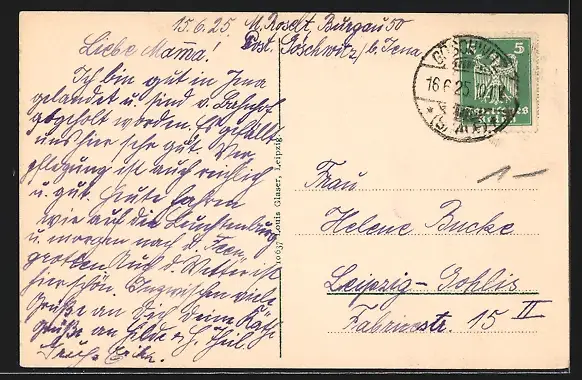 15.6.25. M. Roselt, Burgau 50
Post. Göschwitz, b. Jena
Liebe Mama!
Ich bin gut in Jena
gelandet u. sind v. Bahnhof
abgeholt worden. Es gefällt
uns hier sehr gut. Ver
pflegung ist auch reichlich
u. gut. Heute fahren
wir auf die Leuchtenburg
u. morgen nach d. Feen
grotten. Auch d. Wetter ist
hier schön. Inzwischen viele
Grüße an Dich Deine Käthe
Grüße an Hilde u. H.
10637 Louis Glaser, Leipzig
GÖSCHWITZ
16.6.25
5
1-
Frau
Helene Bucke
Leipzig-Gohlis
Fabricestr. 15 II